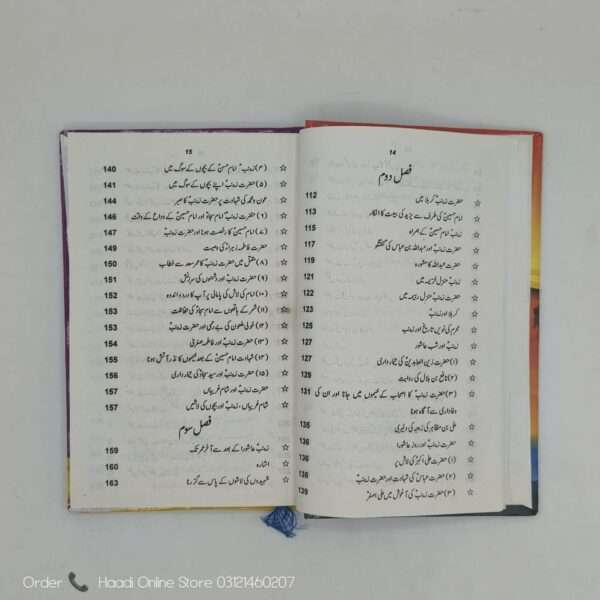 14
فصل دوم
☆ حضرت زینبؑ کربلا میں 112
☆ امام حسینؑ کی طرف سے یزید کی بیعت کا انکار 113
☆ زینبؑ امام حسینؑ کے ہمراہ 114
☆ حضرت زینبؑ اور عبداللہ بن عباس کی گفتگو 117
☆ حضرت عبداللہ کا مشورہ 119
☆ زینبؑ منزل خزیمہ میں 121
☆ حضرت زینبؑ منزل رہیمہ میں 122
☆ کربلا اور زینبؑ 123
☆ محرم کی نویں تاریخ اور زینب 125
☆ زینبؑ اور شب عاشور 127
☆ (۱) حضرت زین العابدینؑ کی تیمارداری 127
☆ (۲) نافع بن ہلال کی روایت 130
☆ (۳) حضرت زینبؑ کا اصحاب کے خیموں میں جانا اور ان کی 131
وفاداری سے آگاہ ہونا
☆ علی بن مظاہر کی زوجہ کی دلیری 135
☆ حضرت زینبؑ اور روز عاشورا 136
☆ (۱) حضرت علی اکبرؑ کی لاش پر 136
☆ (۲) حضرت عباسؑ کی شہادت اور حضرت زینبؑ 138
☆ (۳) حضرت زینبؑ کی آغوش میں علی اصغرؑ 139
15
☆ (۴) زینبؑ امام حسنؑ کے بچوں کے سوگ میں 140
☆ (۵) حضرت زینبؑ اپنے بچوں کے سوگ میں 141
☆ عون و محمد کی شہادت پر حضرت زینبؑ کا صبر 144
☆ (۶) حضرت زینبؑ امام سجادؑ اور امام حسینؑ کے وداع کے وقت 146
☆ (۷) امام حسینؑ کا رخصت ہونا اور حضرت زینبؑ 147
☆ حضرت فاطمہ زہراؑ کی وصیت 149
☆ (۸) مقتل میں حضرت زینبؑ کا عمر سعد سے خطاب 150
☆ (۹) حضرت زینبؑ اور دشمنوں کی سرزنش 151
☆ (۱۰) امام کی لاش کی پامالی پر آپ کا درد و اندوہ 152
☆ (۱۱) شمر کے ہاتھوں سے امام سجادؑ کی حفاظت 153
☆ (۱۲) خولی ملعون کی بے رحمی اور حضرت زینبؑ 153
☆ حضرت زینبؑ اور فاطمہ صغریٰ 154
☆ (۱۳) شہادت امام حسینؑ کے بعد خیموں کا نذر آتش ہونا 155
☆ (۱۵) حضرت زینبؑ اور سید سجادؑ کی تیمارداری 156
☆ حضرت زینبؑ اور شام غریباں 157
☆ شام غریباں، زینبؑ اور بچوں کی لاشیں 157
فصل سوم
☆ زینبؑ عاشورا کے بعد سے آخر عمر تک 159
☆ اشارہ 160
☆ شہیدوں کی لاشوں کے پاس سے گزرنا 163
Order Haadi Online Store 03121460207